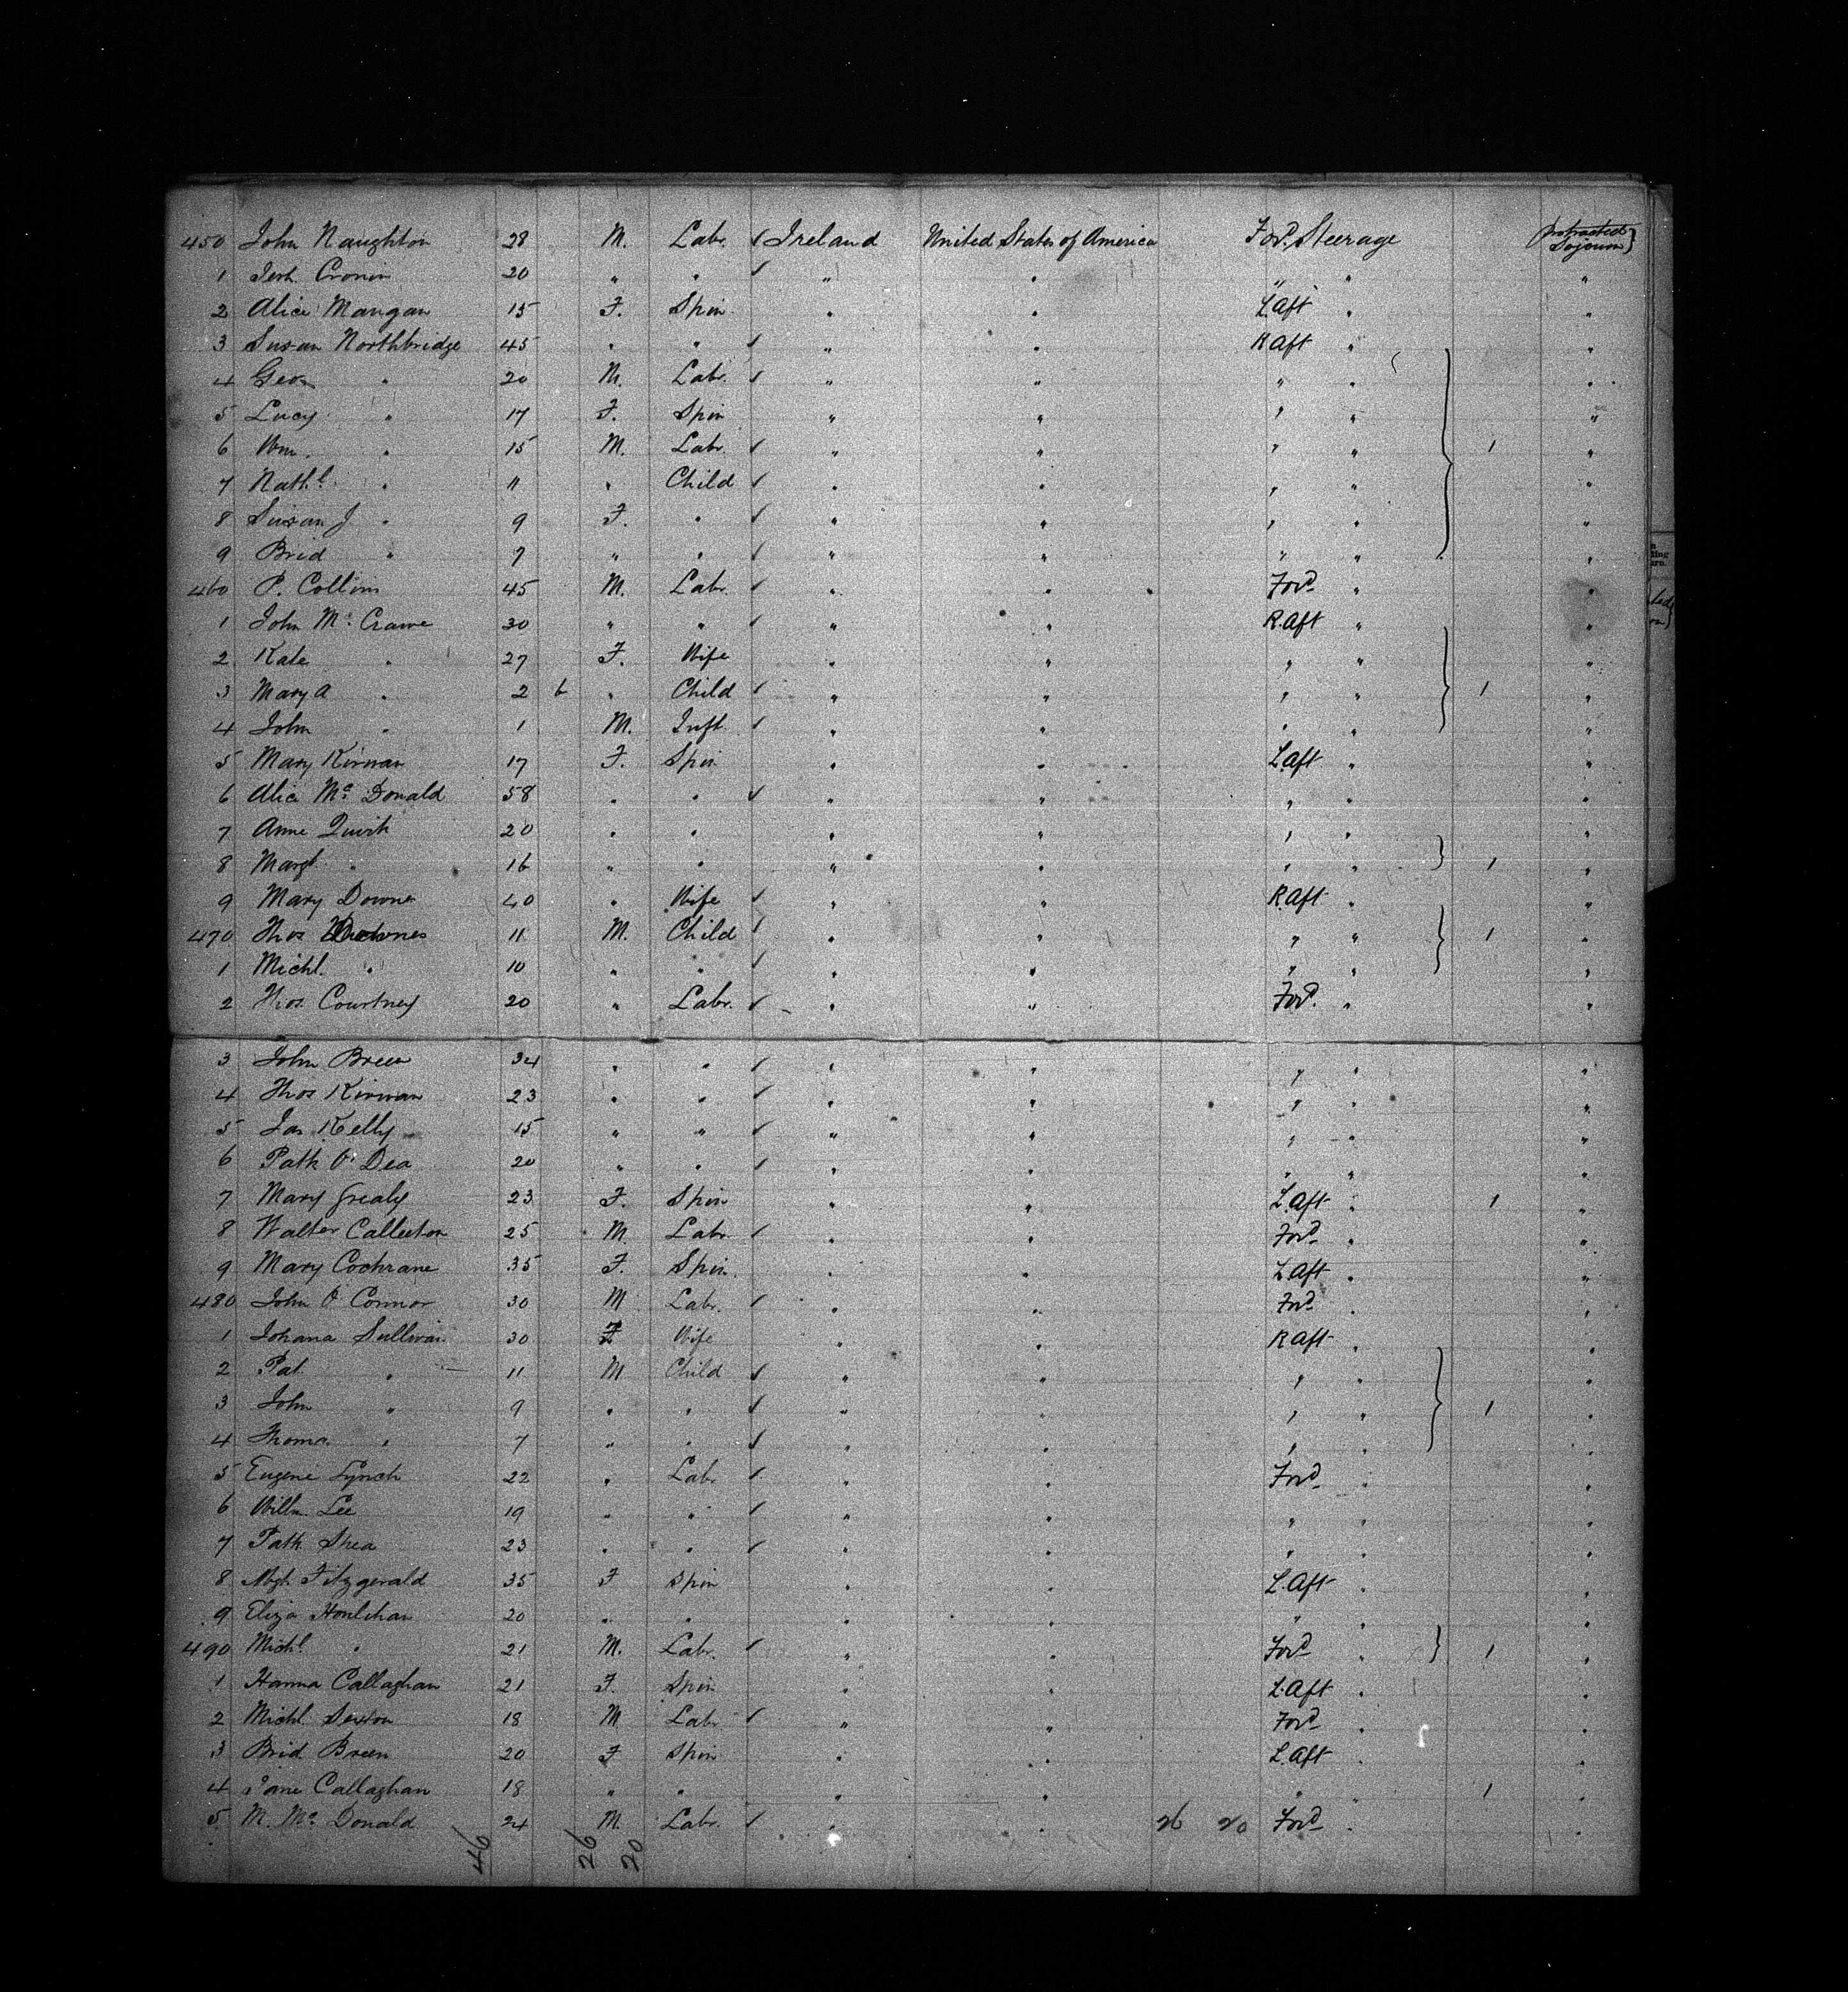 450 John Naughton 28 M. Labr. ✓ Ireland United States of America Ford. Steerage protracted Sojourn}
1 Jerh. Cronin 20 " " ✓ " " " " "
2 Alice Mangan 15 F. Spin. " " L.Aft " "
3 Susan Northbridge 45 " " ✓ " " R Aft " "
4 Geo. " 20 M. Labr. ✓ " " " " "
5 Lucy " 17 F. Spin " " " " "
6 Wm. " 15 M. Labr ✓ " " " " 1 "
7 Nathl. " 11 " Child ✓ " " " " "
8 Susan J " 9 F. " ✓ " " " " "
9 Brid " 7 " " ✓ " " " " "
460 P. Collins 45 M. Labr. ✓ " " Ford " "
1 John Mc. Crawe 30 " " ✓ " " R.Aft " "
2 Kate " 27 F. Wife " " " " "
3 Mary A " 2 6 " Child ✓ " " " " 1 "
4 John " 1 M. Inft. ✓ " " " " "
5 Mary Kirwan 17 F. Spin " " L.Aft " "
6 Alice Mc. Donald 58 " " ✓ " " " " "
7 Anne Quirk 20 " " " " " " "
8 Margt. " 16 " " " " " " 1 "
9 Mary Downes 40 " Wife ✓ " " R.Aft " "
470 Thos Downes 11 M. Child ✓ " " " " 1 "
1 Michl. " 10 " " ✓ " " " " "
2 Thos. Courtney 20 " Labr. ✓ " " Ford. " "
3 John Breen 34 " " ✓ " " " " "
4 Thos Kirwan 23 " " ✓ " " " " "
5 Jas Kelly 15 " " ✓ " " " " "
6 Patk O'Dea 20 " " ✓ " " " " "
7 Mary Grealy 23 F. Spin " " L.Aft " 1 "
8 Walter Culleeton 25 M. Labr. ✓ " " Ford " "
9 Mary Cochrane 35 F. Spin. " " L.Aft " "
480 John O'Connor 30 M Labr. ✓ " " Ford " "
1 Johana Sullivan 30 F Wife " " R Aft " "
2 Pat. " 11 M Child ✓ " " " " "
3 John " 9 " " ✓ " " " " 1 "
4 Thomas " 7 " " ✓ " " " " "
5 Eugene Lynch 22 " Labr ✓ " " Ford " "
6 Willm. Lee 19 " " ✓ " " " " "
7 Patk. Shea 23 " " ✓ " " " " "
8 Mgt. Fitzgerald 35 F Spin " " L.Aft " "
9 Eliza Houlihan 20 " " " " " " "
490 Michl. " 21 M. Labr. ✓ " " Ford " 1 "
1 Hanna Callaghan 21 F. Spin " " L.Aft " "
2 Michl. Sexton 18 M Labr ✓ " " Ford " "
3 Brid. Breen 20 F Spin " " L.Aft " "
4 Jane Callaghan 18 " " " " " " 1 "
5 M. Mc. Donald 24 M. Labr. ✓ " " 26 20 Ford " "
46 26 20